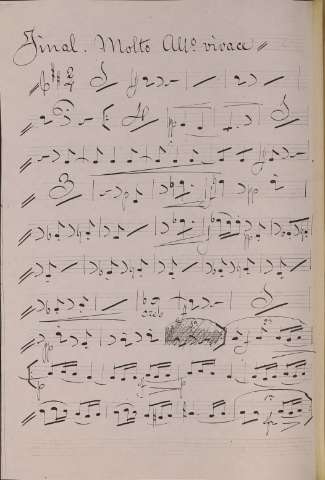 Final. Molto All.º vivace